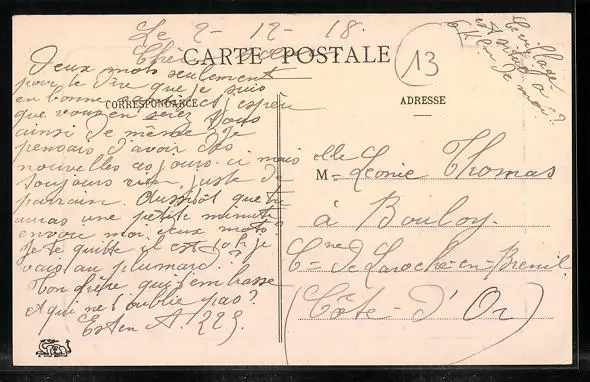 Le 2-12-18.
CARTE POSTALE
13
Le village
est situé à
6 Km de moi?
Deux mots seulement
pour te dire que je suis
en bonne santé et espère
CORRESPONDANCE
ADRESSE
que vous en serez tous
ainsi de même. Je
pensais d'avoir des
nouvelles ces jours-ci mais
toujours rien, juste de
parrain. Aussitôt que tu
auras une petite minute
envoie moi deux mots?
Je te quitte il est 10 h je
vais au plumard.??
Ton frère qui t'embrasse
et qui ne t'oublie pas?
M elle Léonie Thomas
à Bouloy.
Cne de Laroche-en-Brenil
(Côte-d'Or)